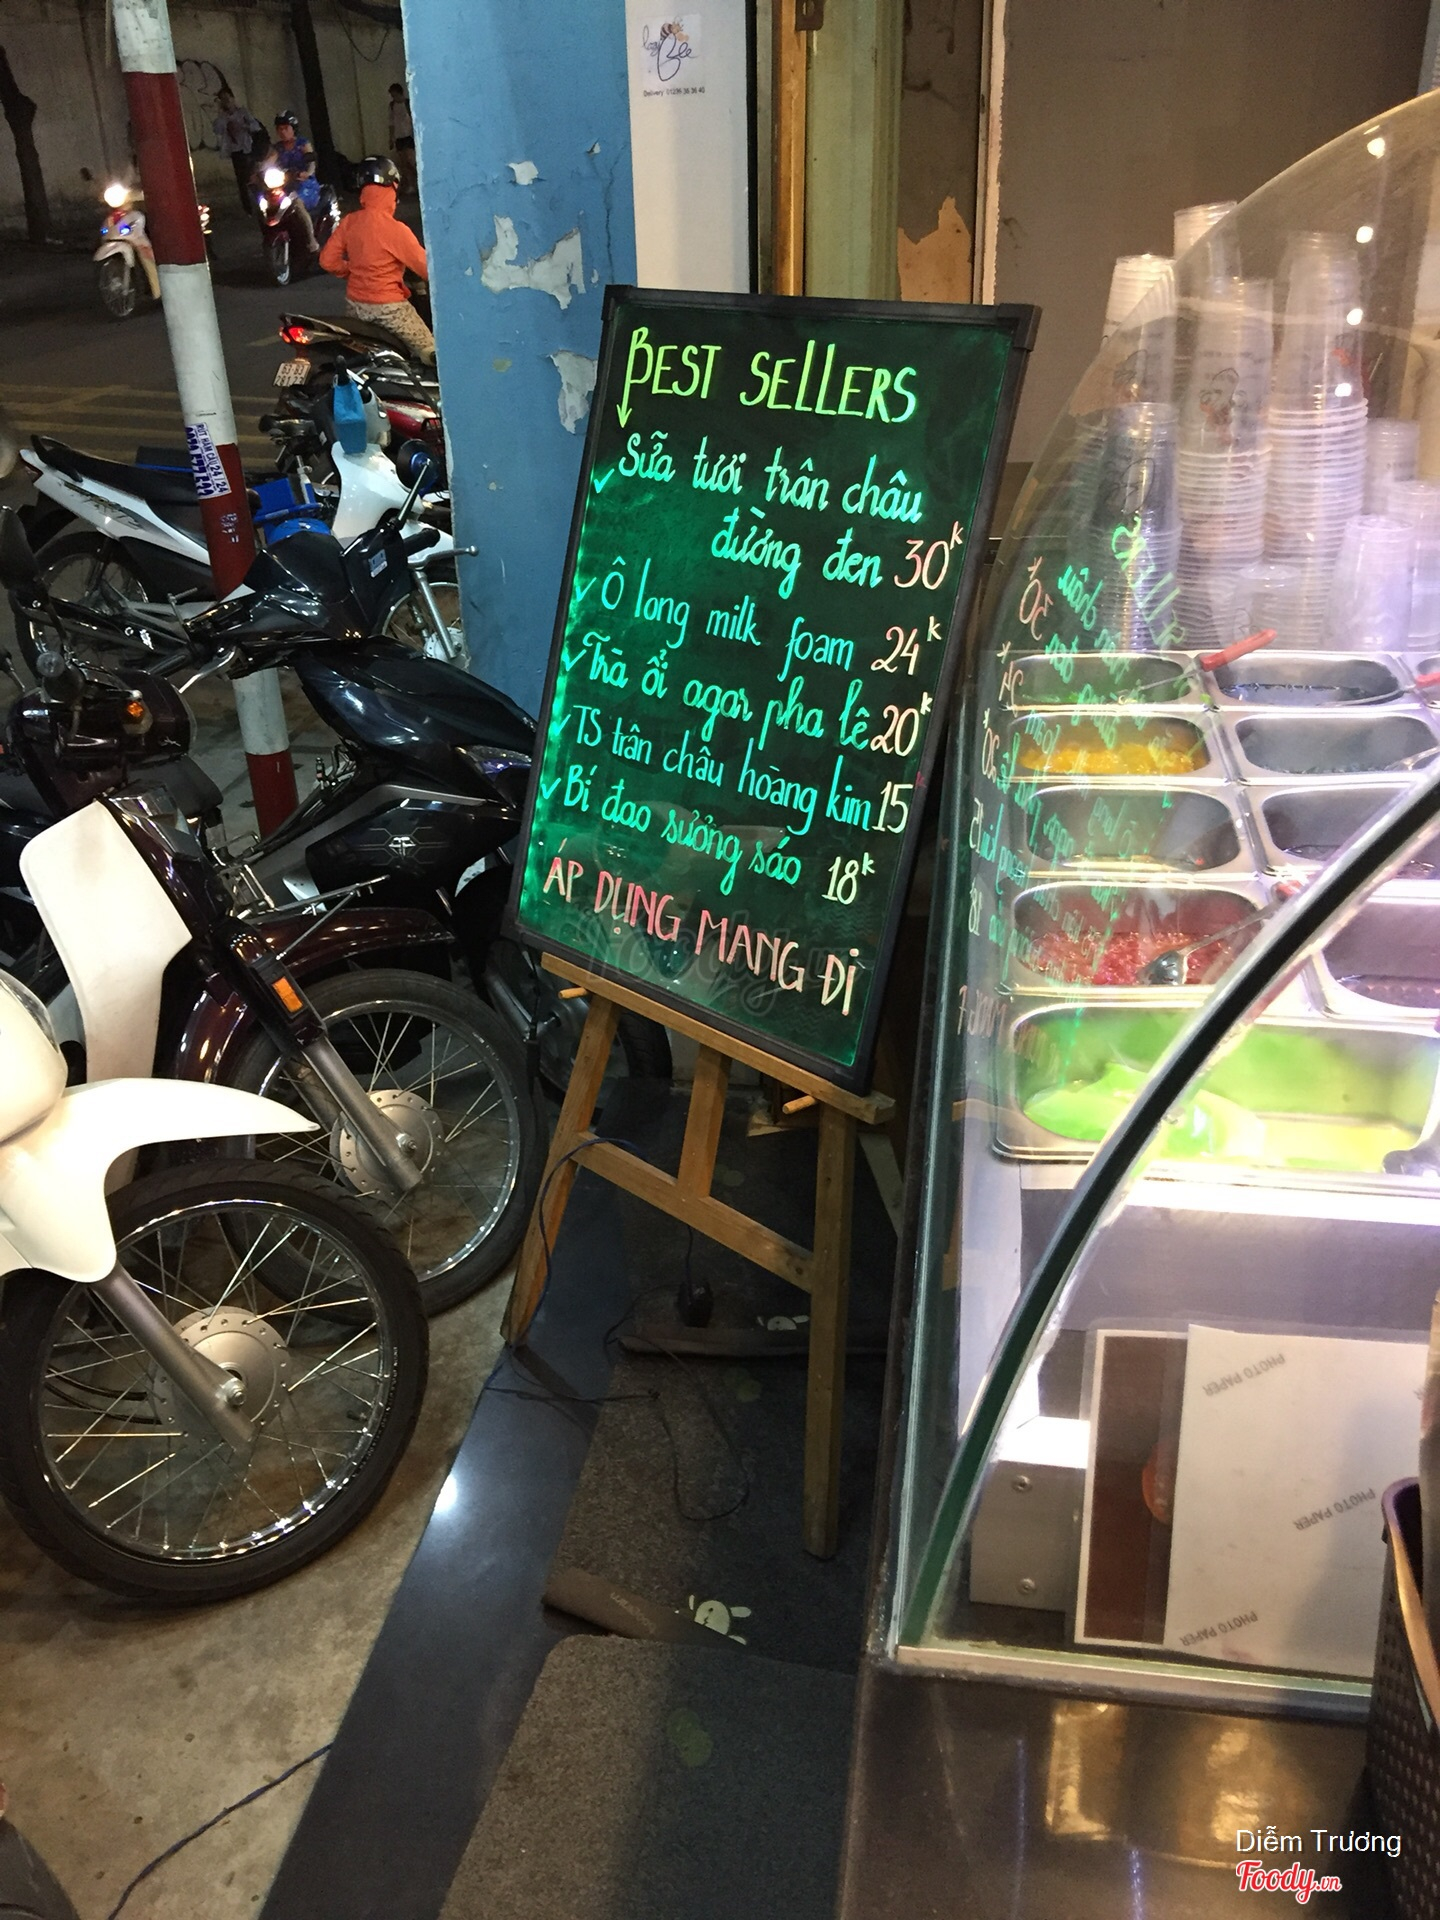 Bee
Delivery: 01239 36 36 40
BEST SELLERS
Sữa tươi trân châu
đường đen 30k
Ô long milk foam 24k
Trà ổi agar pha lê 20k
TS trân châu hoàng kim 15k
Bí đao sưởng sáo 18k
ÁP DỤNG MANG ĐI
PHOTO PAPER
PHOTO PAPER
PHOTO PAPER
Diễm Trương
Foody.vn